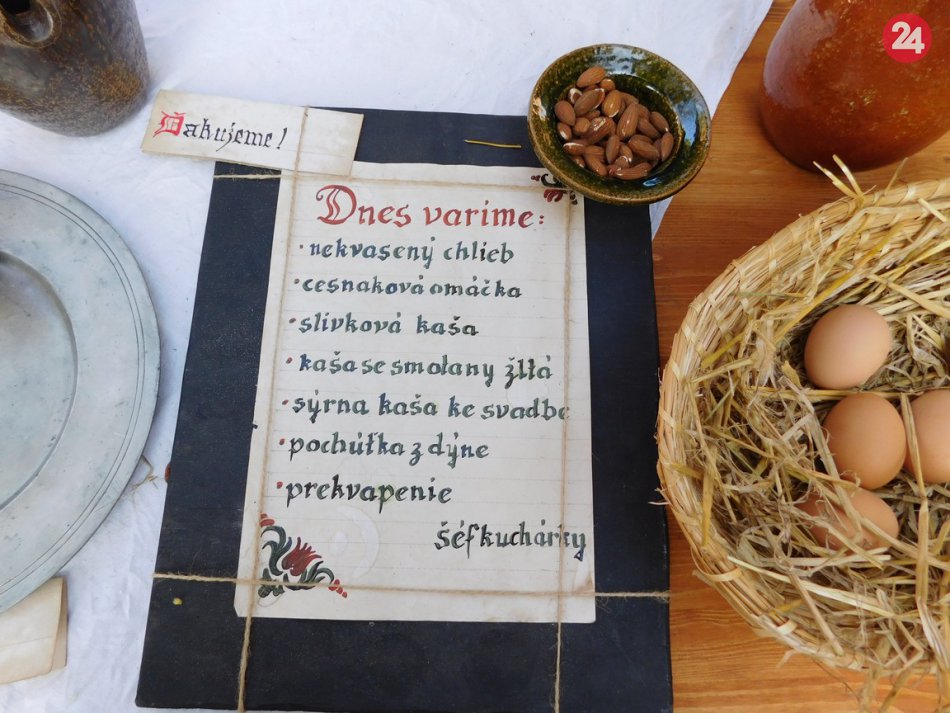 24
Ďakujeme!
Dnes varíme:
· nekvasený chlieb
· cesnaková omáčka
· slivková kaša
· kaša se smotany žltá
· sýrna kaša ke svadbe
· pochúťka z dýne
· prekvapenie
šéfkuchárky